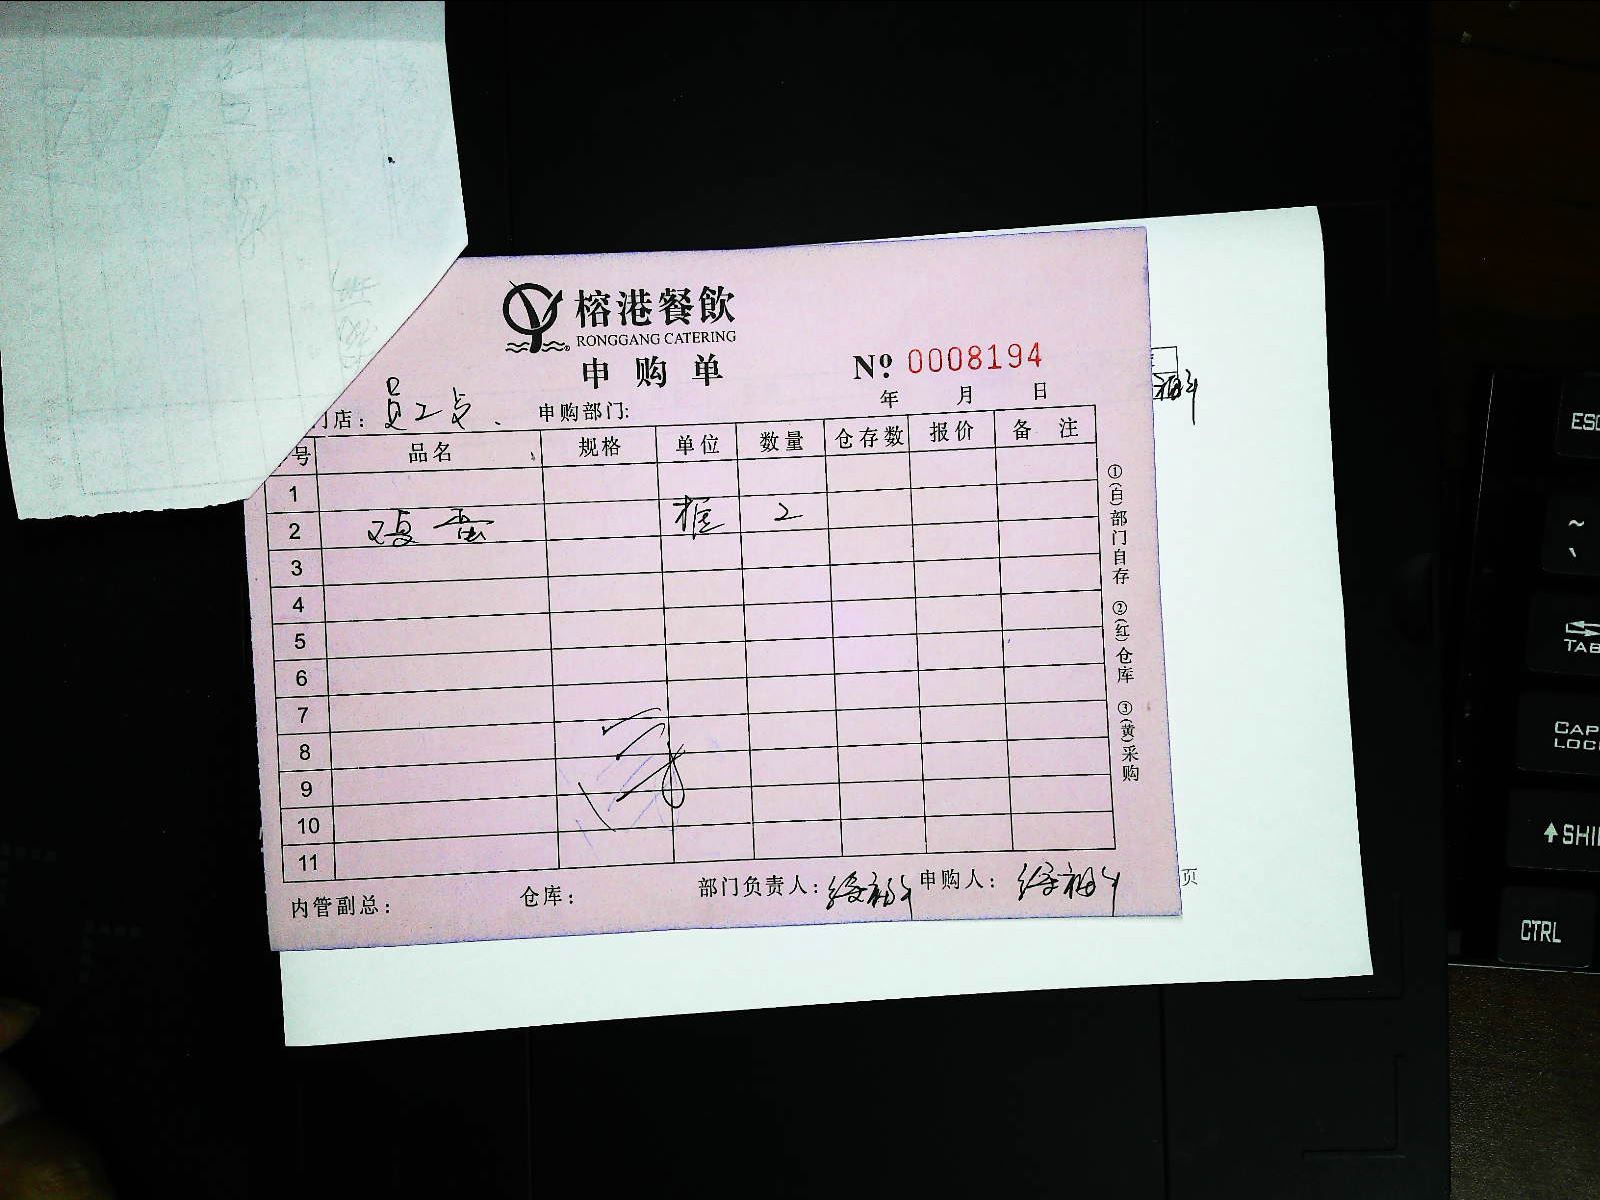 榕港餐飲
RONGGANG CATERING
申购单
№ 0008194
年 月 日
门店: 员工 申购部门:
号 品名 规格 单位 数量 仓存数 报价 备注
1
2 鸡蛋 框 2
3
4
5
6
7
8
9
10
11
内管副总: 仓库: 部门负责人: 申购人:
①(白)部门自存 ②(红)仓库 ③(黄)采购
页
ESC
~
`
TAB
CAPS
LOCK
SHI
CTRL